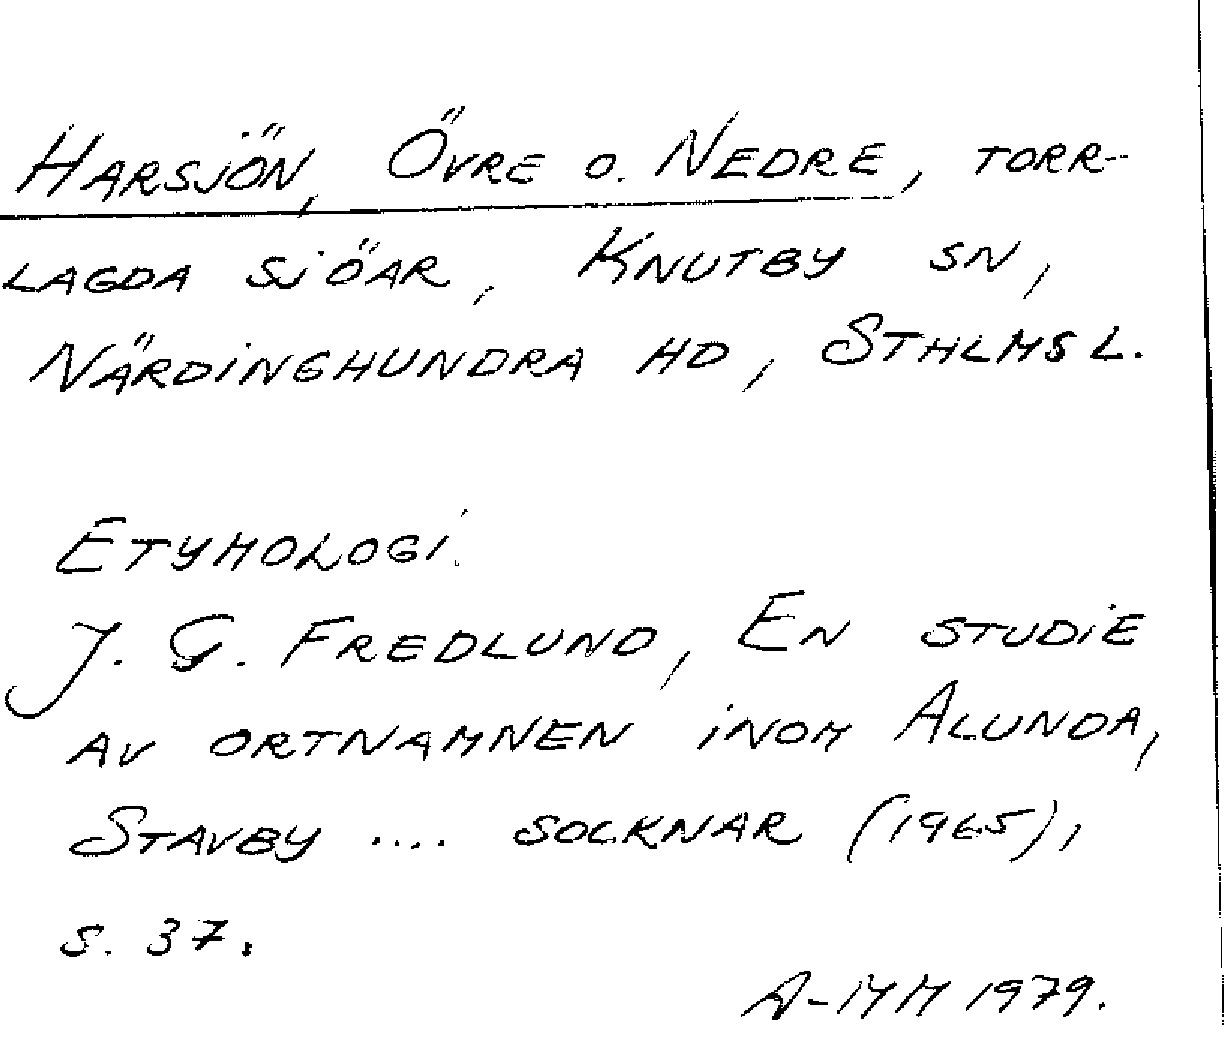 Harsjön, Övre o. Nedre, torr-
lagda sjöar, Knutby sn,
Närdinghundra hd, Sthlms l.
Etymologi.
J. G. Fredlund, En studie
av ortnamnen inom Alunda,
Stavby .... socknar (1965),
s. 37.
A-MM 1979.